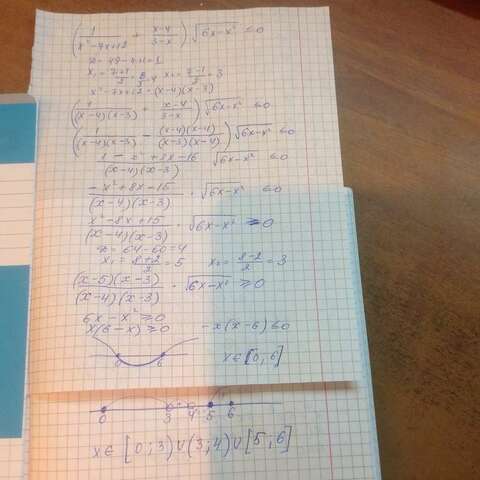 (1/(x²-7x+12) + (x-4)/(3-x)) √(6x-x²) ≤0
D = 49-4·12=1
x₁ = (7+1)/2 = 8/2 = 4 x₂ = (7-1)/2 = 3
x²-7x+12 = (x-4)(x-3)
(1/((x-4)(x-3)) + (x-4)/(3-x)) √(6x-x²) ≤0
(1/((x-4)(x-3)) - (x-4)(x-4)/((x-3)(x-4))) √(6x-x²) ≤0
(1-x²+8x-16)/((x-4)(x-3)) √(6x-x²) ≤0
(-x²+8x-15)/((x-4)(x-3)) · √(6x-x²) ≤0
(x²-8x+15)/((x-4)(x-3)) · √(6x-x²) ≥0
D = 64-60=4
x₁ = (8+2)/2 = 5 x₂ = (8-2)/2 = 3
(x-5)(x-3)/((x-4)(x-3)) · √(6x-x²) ≥0
6x-x² ≥0
x(6-x) ≥0 -x(x-6) ≤0
0 6 x∈[0;6]
0 3 4 5 6
x∈ [0;3)∪(3;4)∪[5;6]